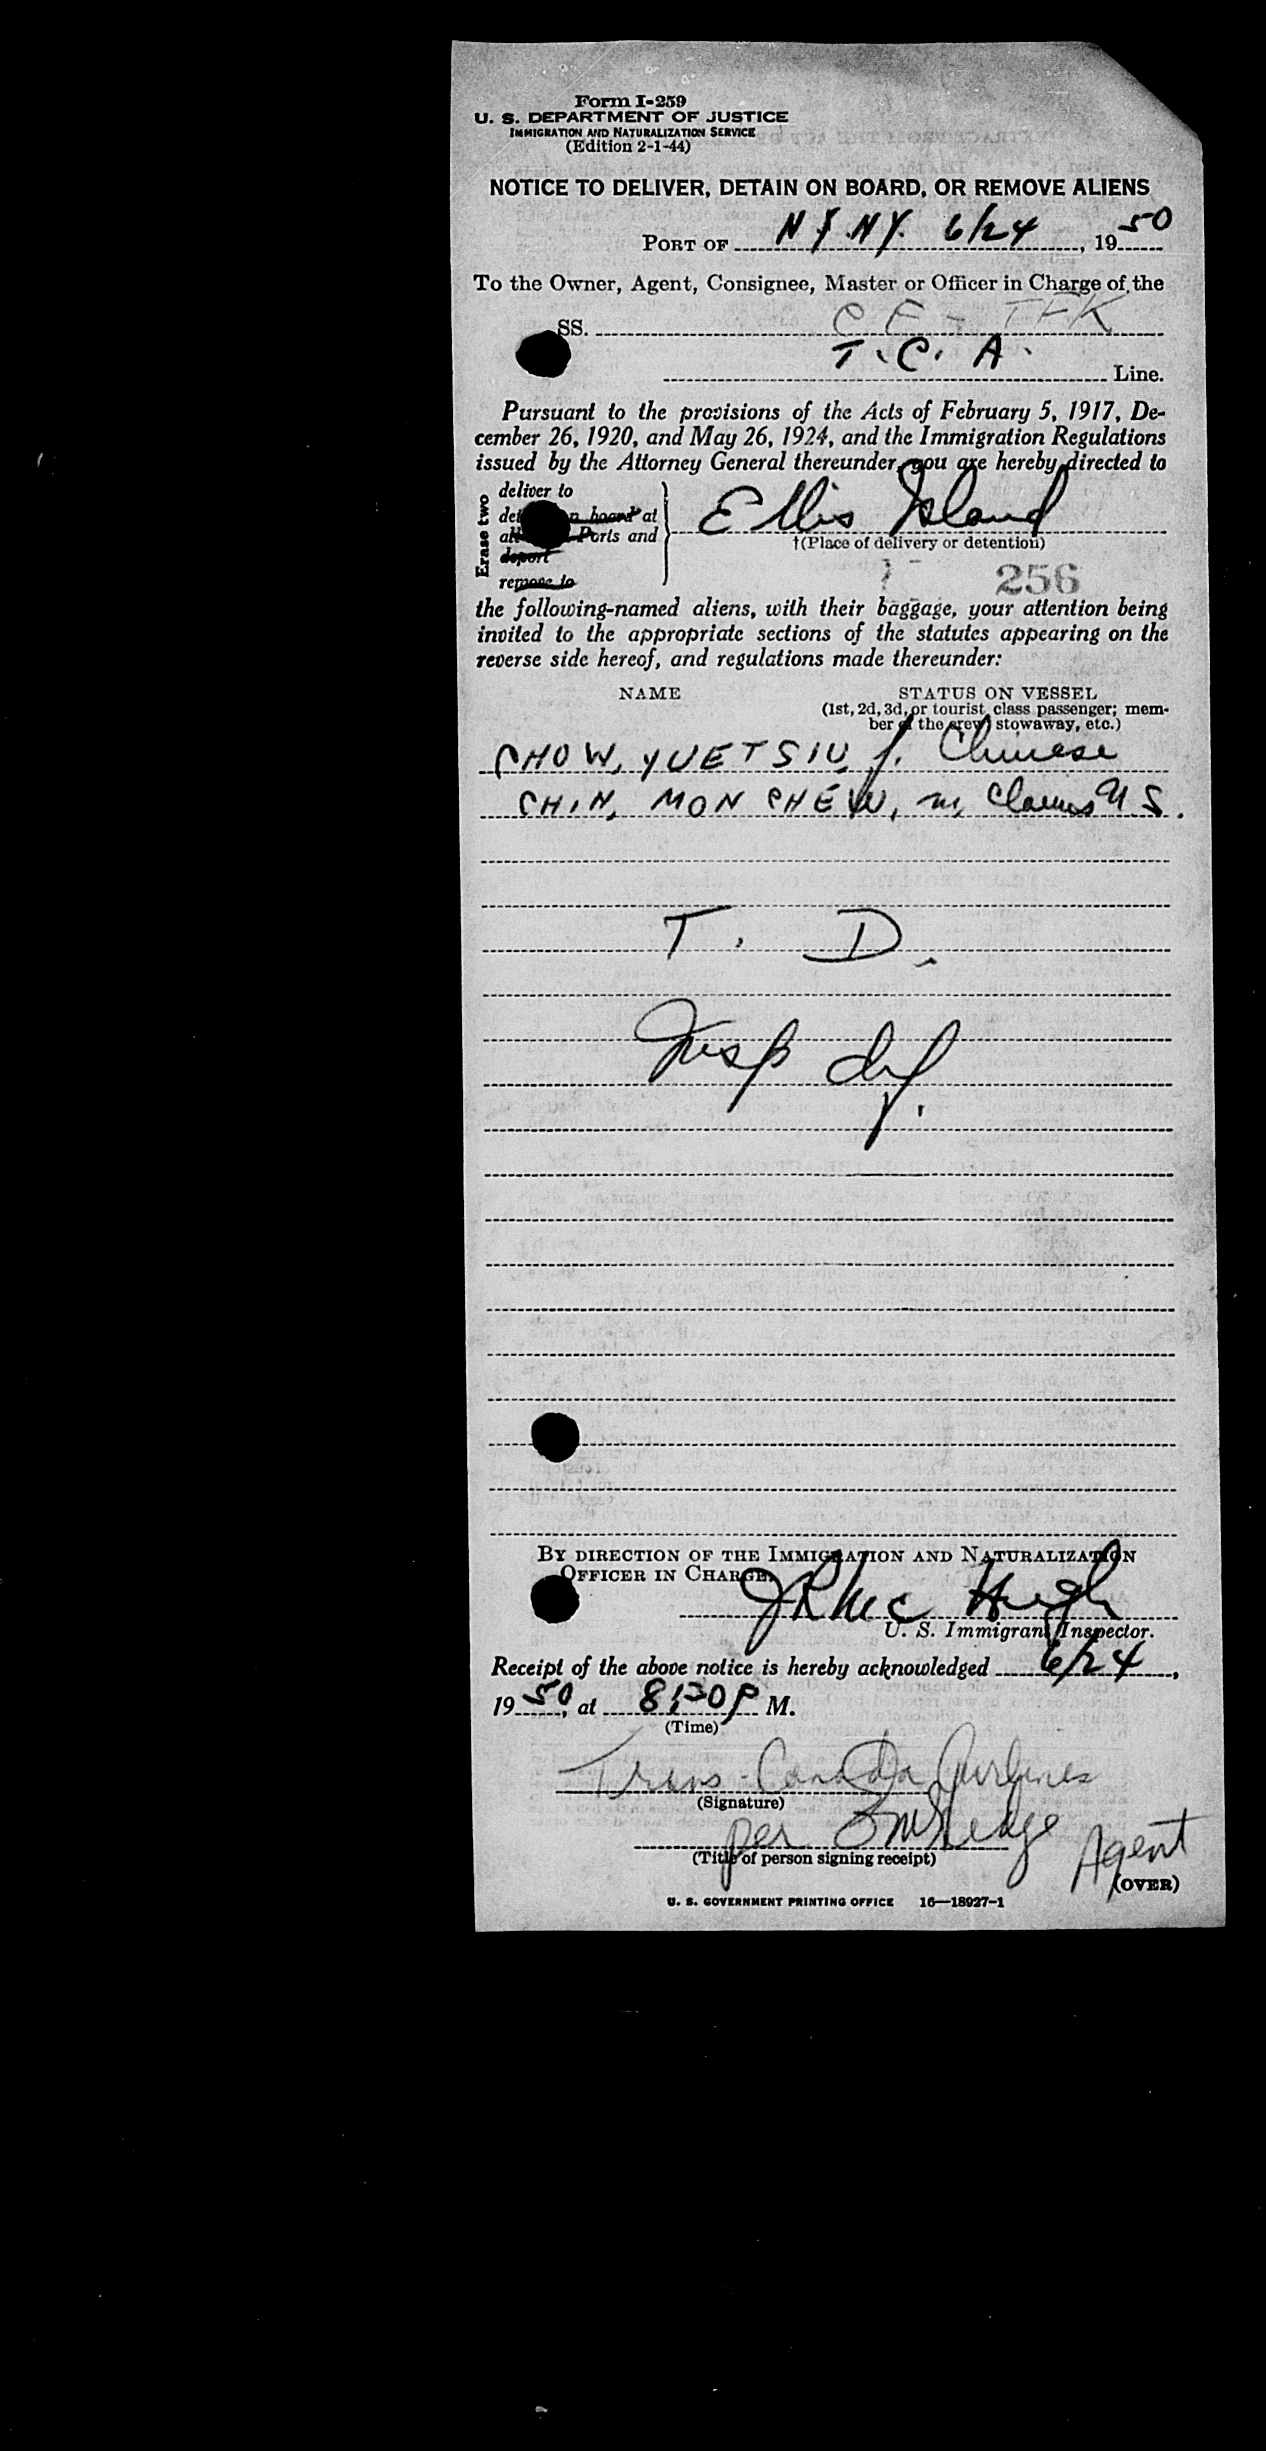 Form I-259
U. S. DEPARTMENT OF JUSTICE
IMMIGRATION AND NATURALIZATION SERVICE
(Edition 2-1-44)
NOTICE TO DELIVER, DETAIN ON BOARD, OR REMOVE ALIENS
PORT OF N Y. N Y. 6/24, 1950
To the Owner, Agent, Consignee, Master or Officer in Charge of the
SS. CF - TFK
T. C. A. Line.
Pursuant to the provisions of the Acts of February 5, 1917, De-
cember 26, 1920, and May 26, 1924, and the Immigration Regulations
issued by the Attorney General thereunder, you are hereby directed to
Erase two
deliver to
board at
Ports and
deport
remove to
Ellis Island
†(Place of delivery or detention)
256
the following-named aliens, with their baggage, your attention being
invited to the appropriate sections of the statutes appearing on the
reverse side hereof, and regulations made thereunder:
NAME STATUS ON VESSEL
(1st, 2d, 3d, or tourist class passenger; mem-
ber of the crew, stowaway, etc.)
CHOW, YUET SIU, f. Chinese
CHIN, MON CHEW, m, Claims U S.
T. D.
Insp def.
BY DIRECTION OF THE IMMIGRATION AND NATURALIZATION
OFFICER IN CHARGE.
J R Mc Hugh
U. S. Immigrant Inspector.
Receipt of the above notice is hereby acknowledged 6/24,
1950, at 8:30 P M.
(Time)
Trans-Canada Airlines
(Signature)
per Agent
(Title of person signing receipt)
(OVER)
U. S. GOVERNMENT PRINTING OFFICE 16—18927-1